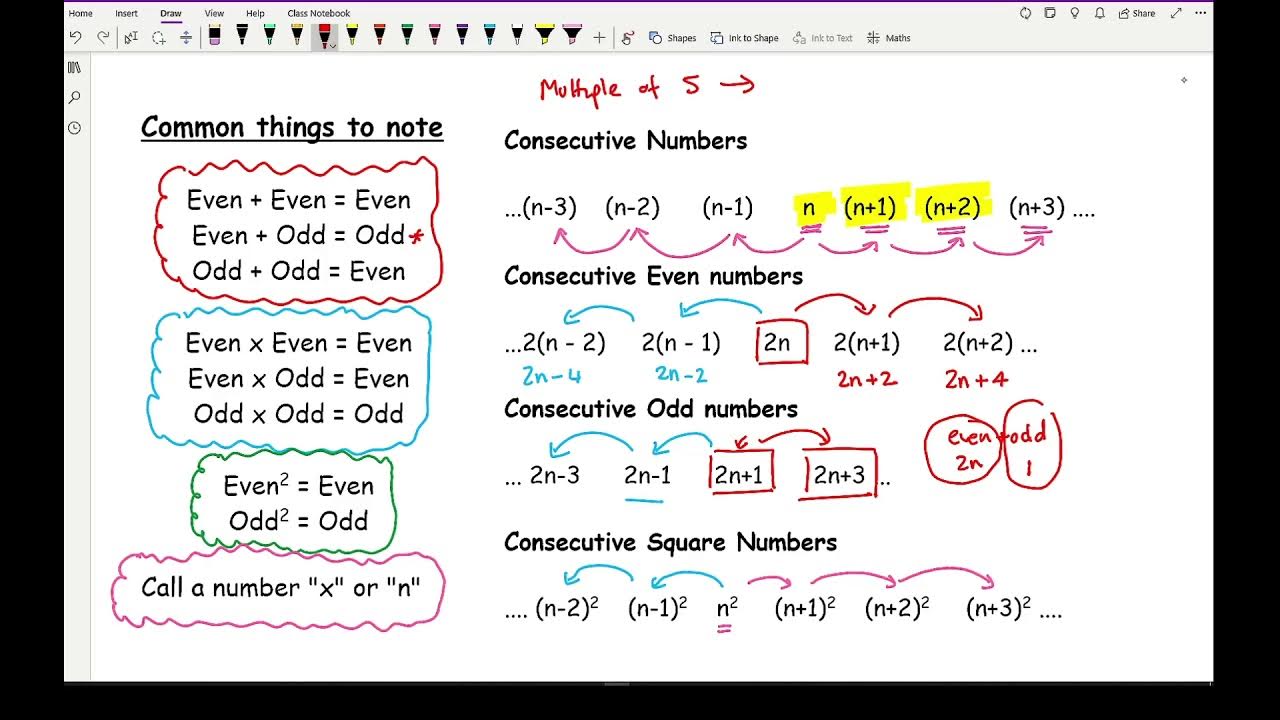 Home Insert Draw View Help Class Notebook Share
Shapes Ink to Shape Ink to Text Maths
Multiple of 5 →
Common things to note
Even + Even = Even
Even + Odd = Odd*
Odd + Odd = Even
Even x Even = Even
Even x Odd = Even
Odd x Odd = Odd
Even² = Even
Odd² = Odd
Call a number "x" or "n"
Consecutive Numbers
...(n-3) (n-2) (n-1) n (n+1) (n+2) (n+3) ....
Consecutive Even numbers
...2(n - 2) 2(n - 1) 2n 2(n+1) 2(n+2) ...
2n-4 2n-2 2n+2 2n+4
Consecutive Odd numbers
even+odd
2n 1
... 2n-3 2n-1 2n+1 2n+3 ..
Consecutive Square Numbers
.... (n-2)² (n-1)² n² (n+1)² (n+2)² (n+3)² ....